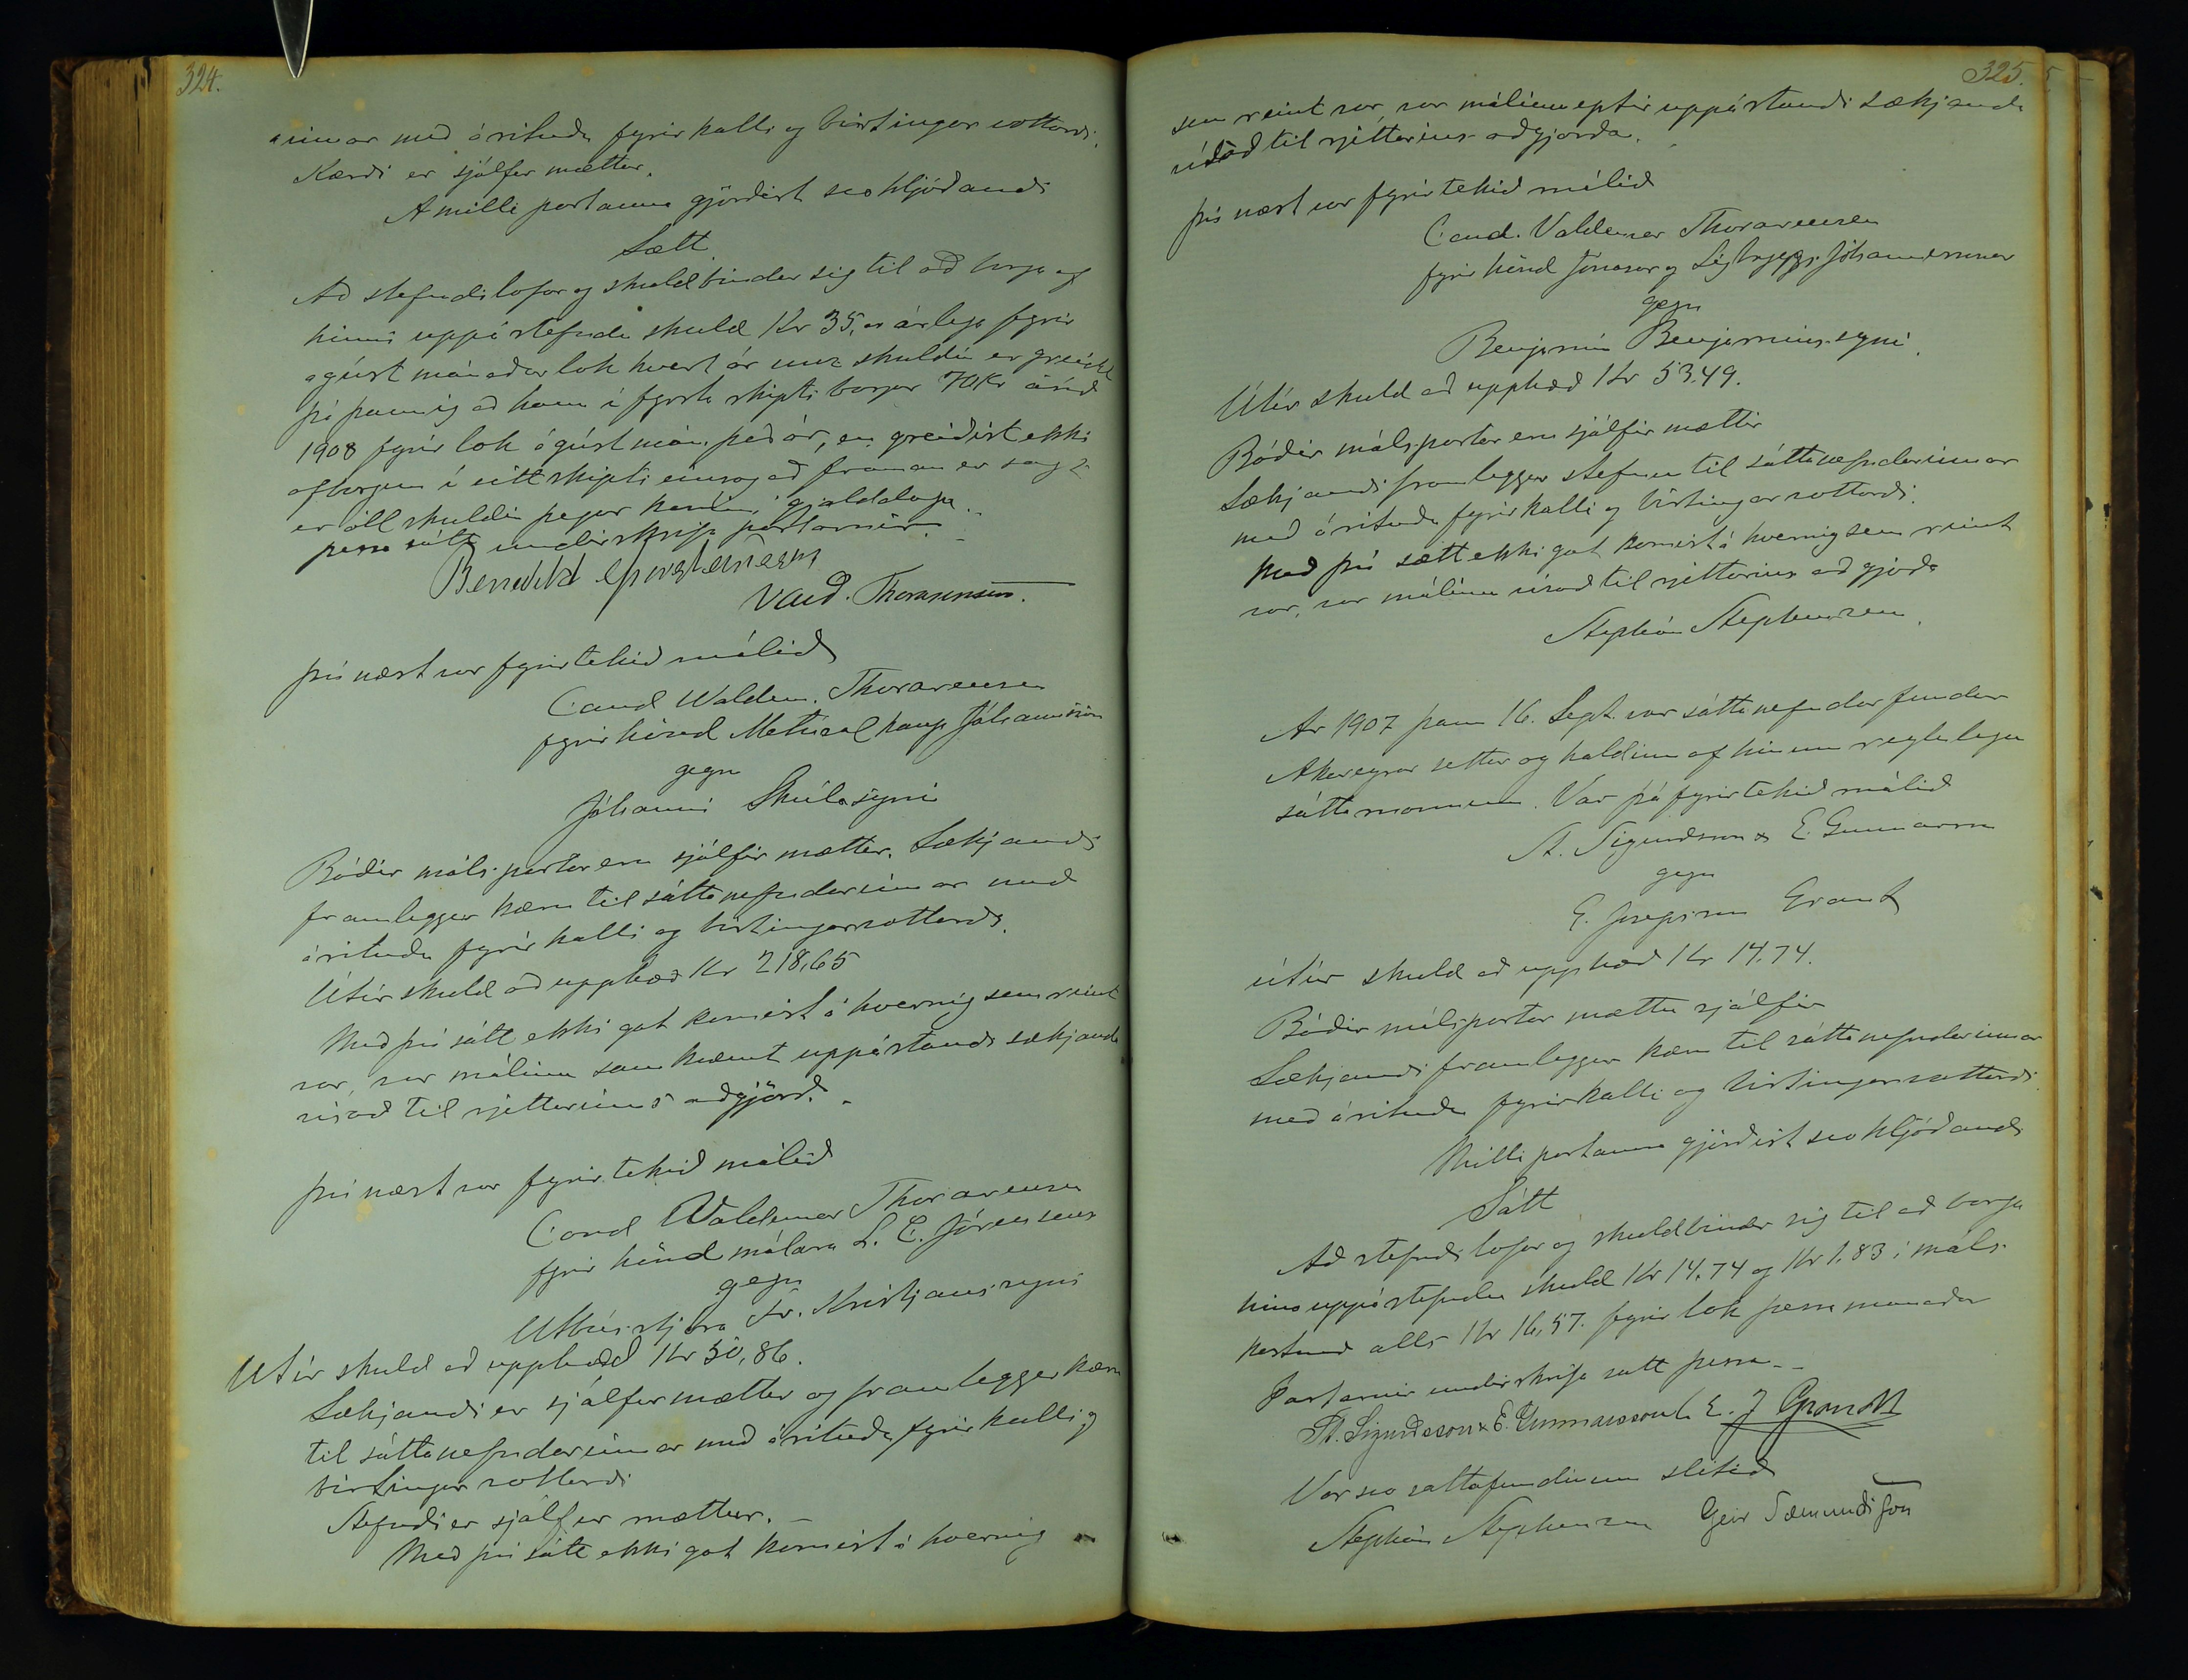 324.
innar með árituðu fyrirkalli og birtingar vottorði.
Kærði er sjálfur mættur.
Á milli partanna gjörðist svo hljóðandi
Sætt
Að stefndi lofar og skuldbindur sig til að borga af
hinni uppástefndu skuld Kr 35,00 árlega fyrir
ágúst mánaðar lok hvert ár unz skuldin er greidd
þó þannig að hann í fyrsta skipti borgar 70 Kr árið
1908 fyrir lok ágústmán. það ár, en greiðist ekki
afborgun í eitt skipti einsog að framan er sagt
er öll skuldin þegar komin í gjalddaga.
þessa sátt undirskrifa partarnir.
Benedikt Þorsteinsson
Vald. Thorarensen.
Því næst var fyrirtekið málið
Cand Valdem. Thorarensen
fyrir hönd Metúsal kaupm Jóhannssonar
gegn
Jóhanni Skúlasyni
Báðir málspartar eru sjálfir mættir. Sækjandi
framleggur kæru til sáttanefndarinnar með
árituðu fyrirkalli og birtingarvottorði.
Útúr skuld að upphæð Kr 218,65
Með því sátt ekki gat komist á hvernig sem reint
var, var málinu samkvæmt uppástandi sækjanda
vísað til rjettarins aðgjörða.
því næst var fyrirtekið málið
Cand Valdemar Thorarensen
fyrir hönd málara L. C. Jörensens
gegn
Útbússtjóra Fr. Kristjánssyni
Útúr skuld að upphæð Kr 50,86.
Sækjandi er sjálfur mættur og framleggur kæru
til sáttanefndarinnar með árituðu fyrirkalli og
birtingar vottorði
Stefndi er sjálfur mættur.
Með því sátt ekki gat komist á hvernig
325.
sem reint var var málinu eptir uppástandi sækjanda
vísað til rjettarins aðgjörða.
því næst var fyrirtekið málið
Cand. Valdemar Thorarensen
fyrir hönd Jónasar og Sigtryggs Jóhannessonar
gegn
Benjamín Benjamínssyni
Útúr skuld að upphæð Kr 53.49.
Báðir málspartar eru sjálfir mættir
Sækjandi framleggur stefnu til sáttanefndarinnar
með árituðu fyrirkalli og birtingarvottorði.
Með því sætt ekki gat komist á hvernig sem reint
var, var málinu vísað til rjettarins aðgjörða
Stephán Stephensen
Ár 1907 þann 16. Sept. var sáttanefndarfundur
Akureyrar settur og haldinn af hinum reglulegu
sáttamönnum. Var þá fyrirtekið málið
St. Sigurdsson & E. Gunnarsson
gegn
E. Jósepsson Grant
útúr skuld að upphæð Kr 14.74.
Báðir málspartar mættu sjálfir
Sækjandi framleggur kæru til sáttanefndarinnar
með árituðu fyrirkalli og birtingarvottorði
Milli partanna gjörðist svo hljóðandi
Sátt
Að stefndi lofar og skuldbindur sig til að borga
hina uppástefndu skuld Kr 14,74 og Kr 1.83 í máls-
kostnað alls Kr 16,57. fyrir lok þessa mánaðar
Partarnir undirskrifa sátt þessa.
St. Sigurðsson & E. Gunnarsson E. J Grant
Var svo sáttafundinum slitið
Stephán Stephensen Geir Sæmundsson